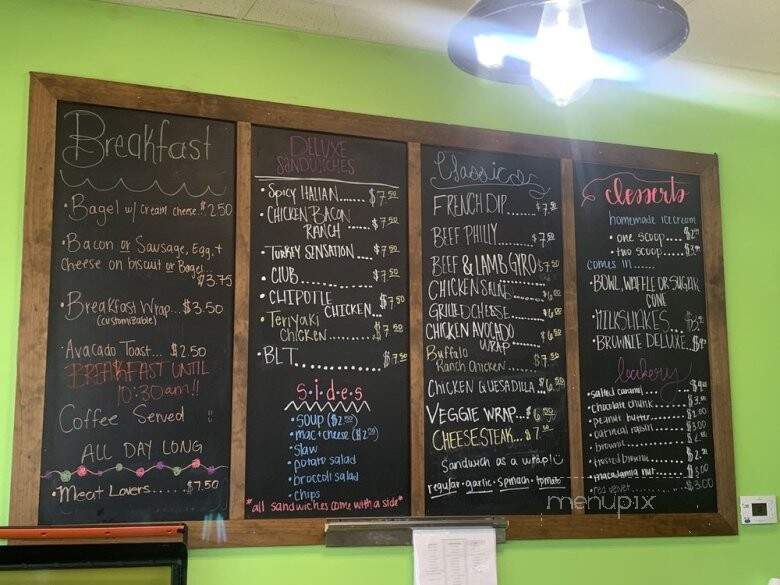 Breakfast
• Bagel w/ cream cheese.. $2.50
• Bacon or Sausage, Egg, +
Cheese on biscuit or Bagel
$3.75
• Breakfast Wrap... $3.50
(customizable)
• Avacado Toast... $2.50
BREAKFAST UNTIL
10:30am!!
Coffee Served
ALL DAY LONG
• Meat Lovers...... $7.50
DELUXE
SANDWICHES
• SPICY ITALIAN....... $7.50
• CHICKEN BACON
RANCH ... $7.50
• TURKEY SENSATION.... $7.50
• CLUB.................. $7.50
• CHIPOTLE
CHICKEN... $7.50
• Teriyaki
CHICKEN........ $7.50
• BLT............... $7.50
s.i.d.e.s
• SOUP ($2.50)
• mac + cheese ($2.50)
• slaw
• potato salad
• broccoli salad
• chips
*all sandwiches come with a side*
Classics
FRENCH DIP...... $7.50
BEEF PHILLY...... $7.50
BEEF & LAMB GYRO $7.50
CHICKEN SALAD
GRILLED CHEESE
CHICKEN AVOCADO
WRAP
Buffalo
Ranch Chicken ...... $7.50
CHICKEN QUESADILLA.. $6.50
VEGGIE WRAP... $6.50
CHEESESTEAK... $7.50
Sandwich as a wrap!
regular • garlic • spinach • tomato
desserts
homemade ice cream
• one scoop....
• two scoop....
comes in......
• BOWL, WAFFLE OR SUGAR
CONE
• MILKSHAKES....
• BROWNIE DELUXE..
bakery
• salted caramel
• chocolate chunk
• peanut butter
• oatmeal raisin
• brownie
• frosted brownie
• macadamia nut
• red velvet $3.00
menupix